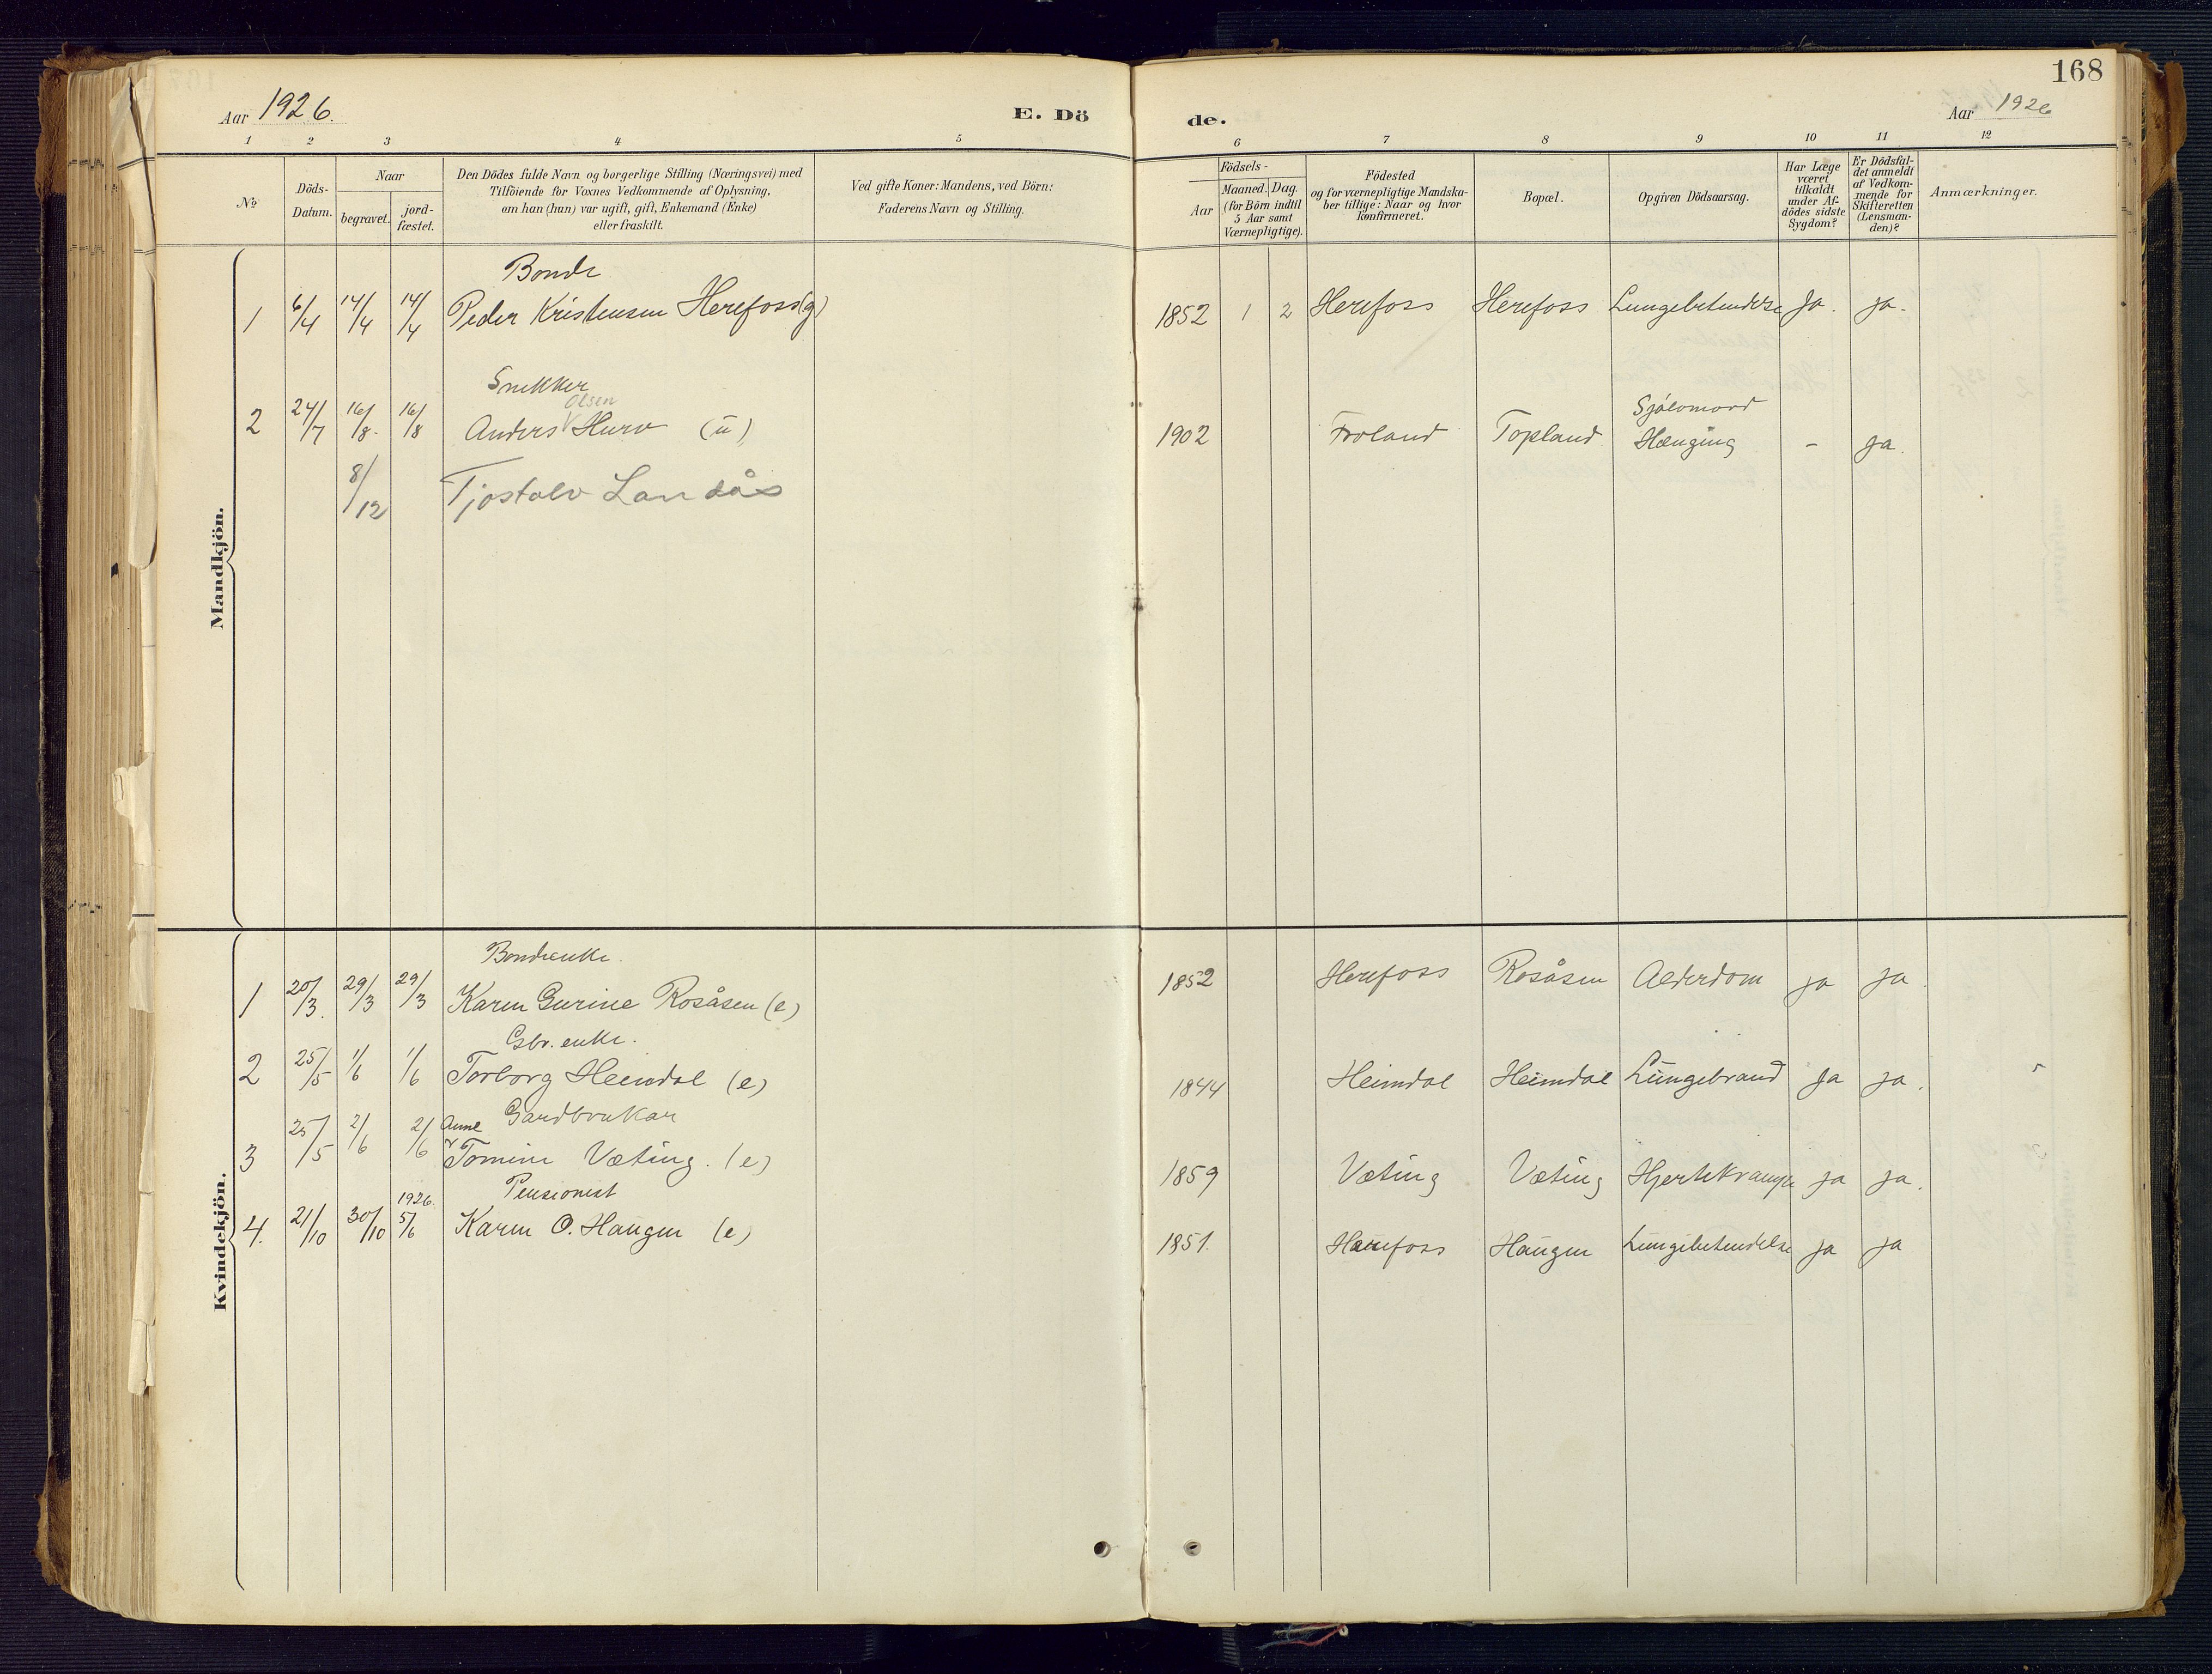 168
Aar 1926.
E. Dö
de.
Aar 1926
1 2 3 4 5 6 7 8 9 10 11 12
No
Döds-
Datum.
Naar
begravet.
jord-
fæstet.
Den Dödes fulde Navn og borgerlige Stilling (Næringsvei) med
Tilföiende for Voxnes Vedkommende af Oplysning,
om han (hun) var ugift, gift, Enkemand (Enke)
eller fraskilt.
Ved gifte Koner: Mandens, ved Börn:
Faderens Navn og Stilling.
Födsels-
Aar
Maaned. Dag.
(for Börn indtil
5 Aar samt
Værnepligtige).
Födested
og for værnepligtige Mandska-
ber tillige: Naar og hvor
konfirmeret.
Bopæl.
Opgiven Dödsaarsag.
Har Læge
været
tilkaldt
under Af-
dödes sidste
Sygdom?
Er Dödsfal-
det anmeldt
af Vedkom-
mende for
Skifteretten
(Lensman-
den)?
Anmærkninger.
Mandkjön.
Bonde
1 6/4 14/4 14/4 Peder Kristensen Herefoss (g) 1852 1 2 Herefoss Herefoss Lungebetendelse Ja. ja.
Snekker
Olsen
Sjålvmord
2 24/7 16/8. 16/8 Anders V Hurv (u) 1902 Froland Topland Hænging - ja.
8/12 Tjostolv Landås
Kvindekjön.
Bondeenke.
1 20/3. 29/3 29/3 Karen Gurine Rosåsen (e) 1852 Herefoss Rosåsen Alderdom ja ja.
Gbr. enke.
2 25/5 1/6 1/6 Torborg Heimdal (e) 1844 Heimdal Heimdal Lungebrand Ja ja.
Anne Gardbrukar
3 25/5 2/6 2/6 Tomine Væting. (e) 1859 Væting Væting Hjertekrampe ja ja.
1926. Pensionist
4. 21/10 30/10 5/6 Karen O. Haugen (e) 1851. Herefoss Haugen Lungebetendelse ja ja